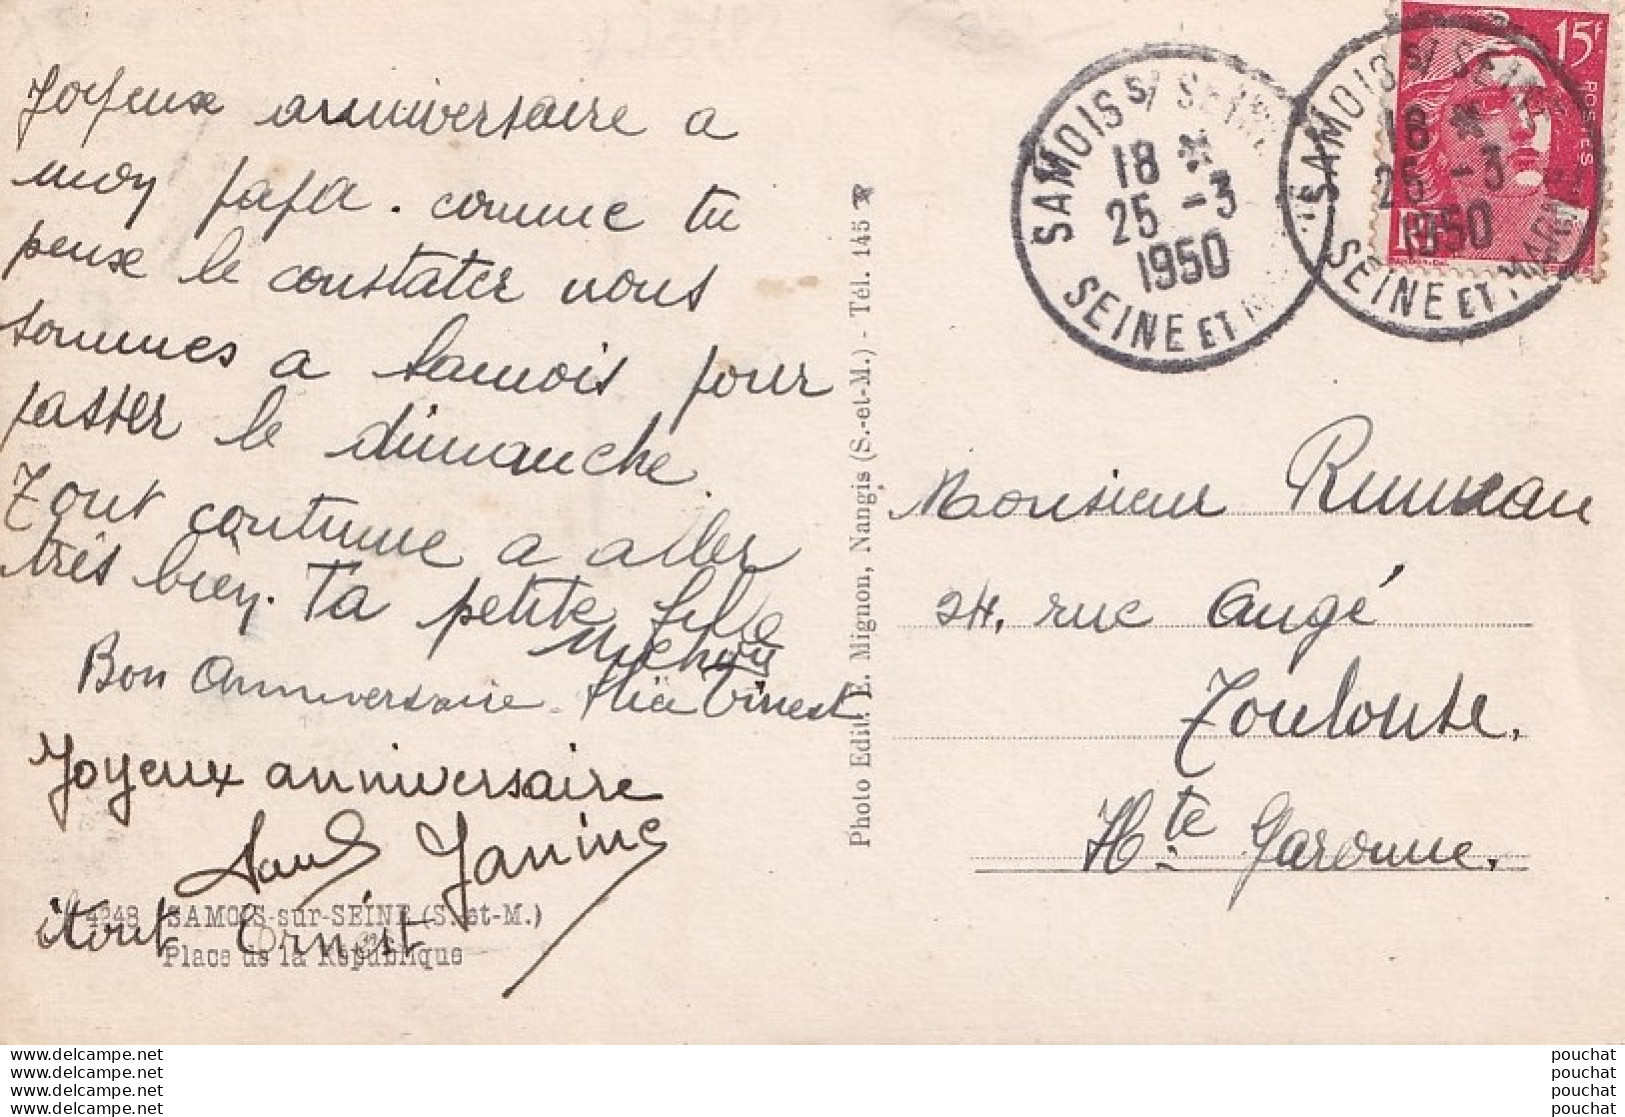 Joyeux anniversaire a
moy papa. comme tu
peux le constater nous
sommes a Samois pour
passer le dimanche.
Tout continue a aller
très bien. Ta petite fille
Bon Anniversaire
Joyeux anniversaire
Paul Janine
Ernest
4248 SAMOIS-sur-SEINE (S.-et-M.)
Place de la République
Photo Edit. E. Mignon, Nangis (S.-et-M.) - Tél. 145
SAMOIS S/ SEINE
18 *
25 -3
1950
SEINE ET M
SAMOIS S/ SEINE
18 *
25 -3
1950
SEINE ET MARNE
15f
POSTES
Monsieur Rumeau
24, rue Augé
Toulouse.
Hte Garonne.
www.delcampe.net
www.delcampe.net
www.delcampe.net
www.delcampe.net
pouchat
pouchat
pouchat
pouchat